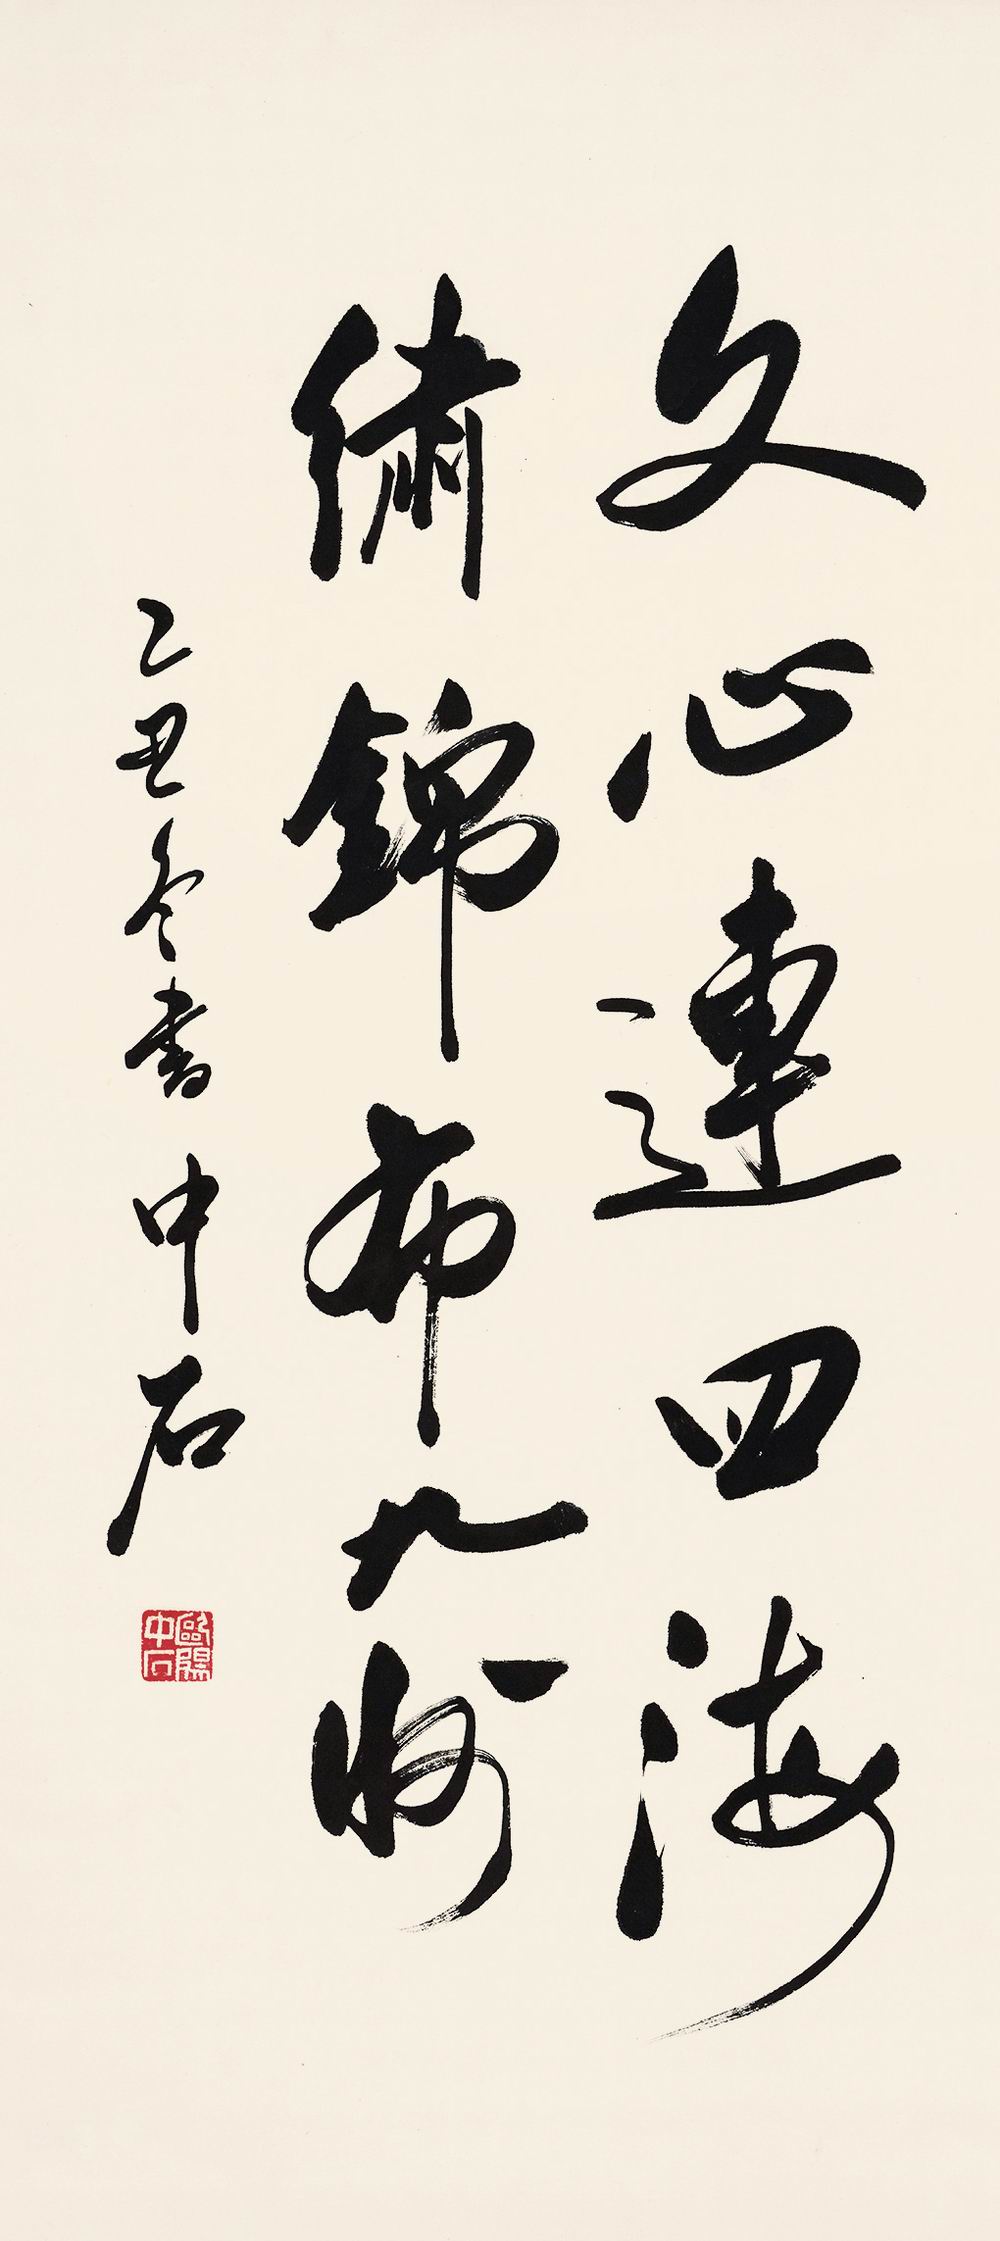 文心連四海
繡錦布九州
乙丑冬書 中石
歐陽中石